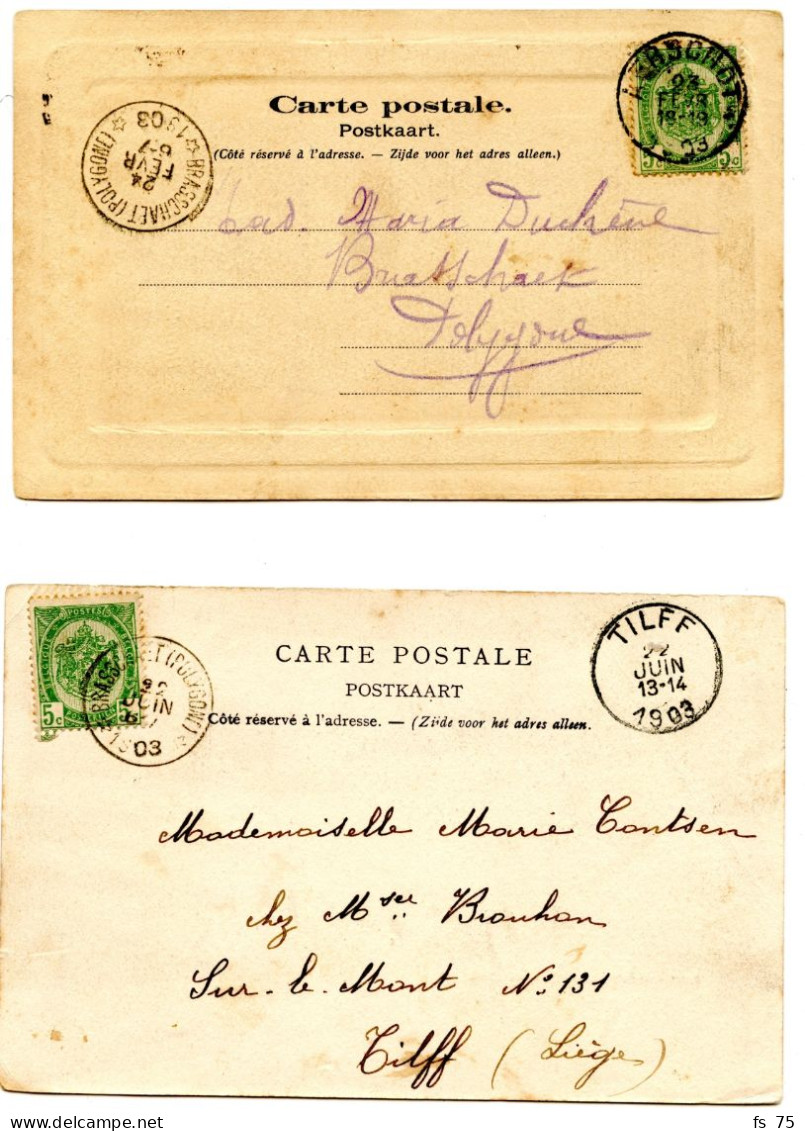 Carte postale.
Postkaart.
(Côté réservé à l'adresse. — Zijde voor het adres alleen.)
23
FEVR
18-19
03
5c 5c
☆ BRASSCHAET (POLYGONE) ☆
24
FEVR
1903
Maria Duchêne
Brasschaet
Polygone
POSTES
5c
BRASSCHAET (POLYGONE)
22
JUIN
1903
TILFF
22
JUIN
13-14
1903
CARTE POSTALE
POSTKAART
Côté réservé à l'adresse. — (Zijde voor het adres alleen.
Mademoiselle Marie Contsen
chez Mser Brouhon
Sur-le-Mont No 131
Tilff (Liège)
delcampe.net
fs_75